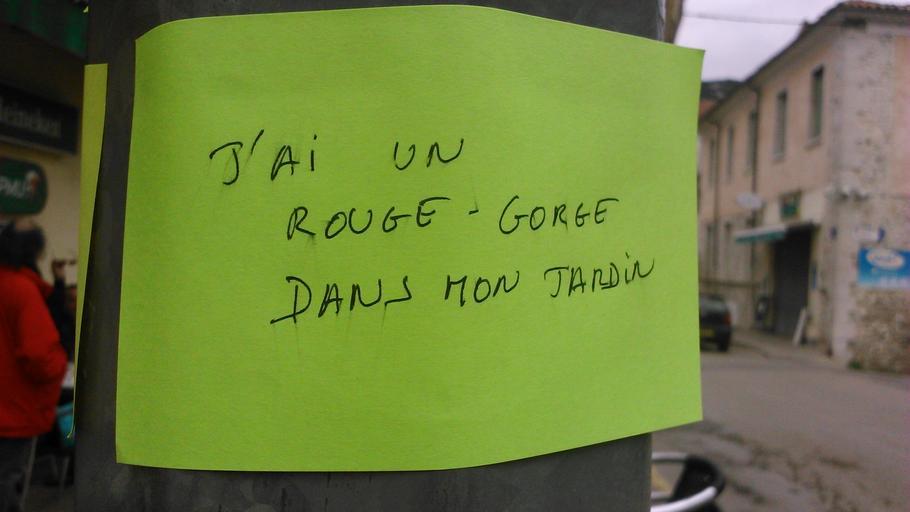 J'Ai UN
ROUGE-GORGE
DANS MON JARDiN
Heineken
PMU